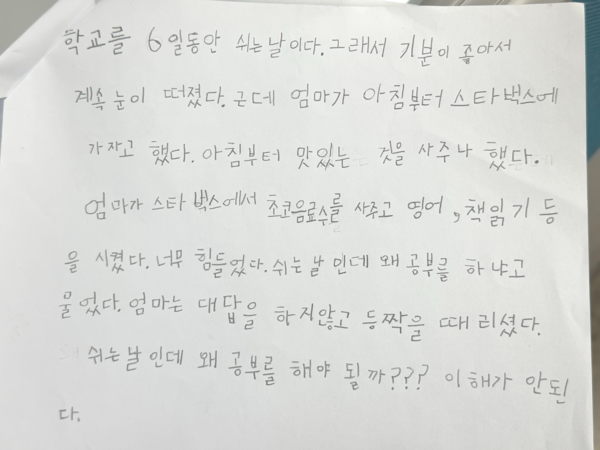 학교를 6일동안 쉬는날이다.그래서 기분이 좋아서
계속 눈이 떠졌다.근데 엄마가 아침부터 스타벅스에
가자고 했다.아침부터 맛있는 것을 사주나 했다.
엄마가 스타벅스에서 초코음료수를 사주고 영어,책읽기등
을 시켰다.너무 힘들었다.쉬는날인데 왜공부를 하냐고
물었다.엄마는 대답을 하지않고 등짝을 때리셨다.
쉬는날인데 왜 공부를 해야 될까??? 이해가 안된
다.